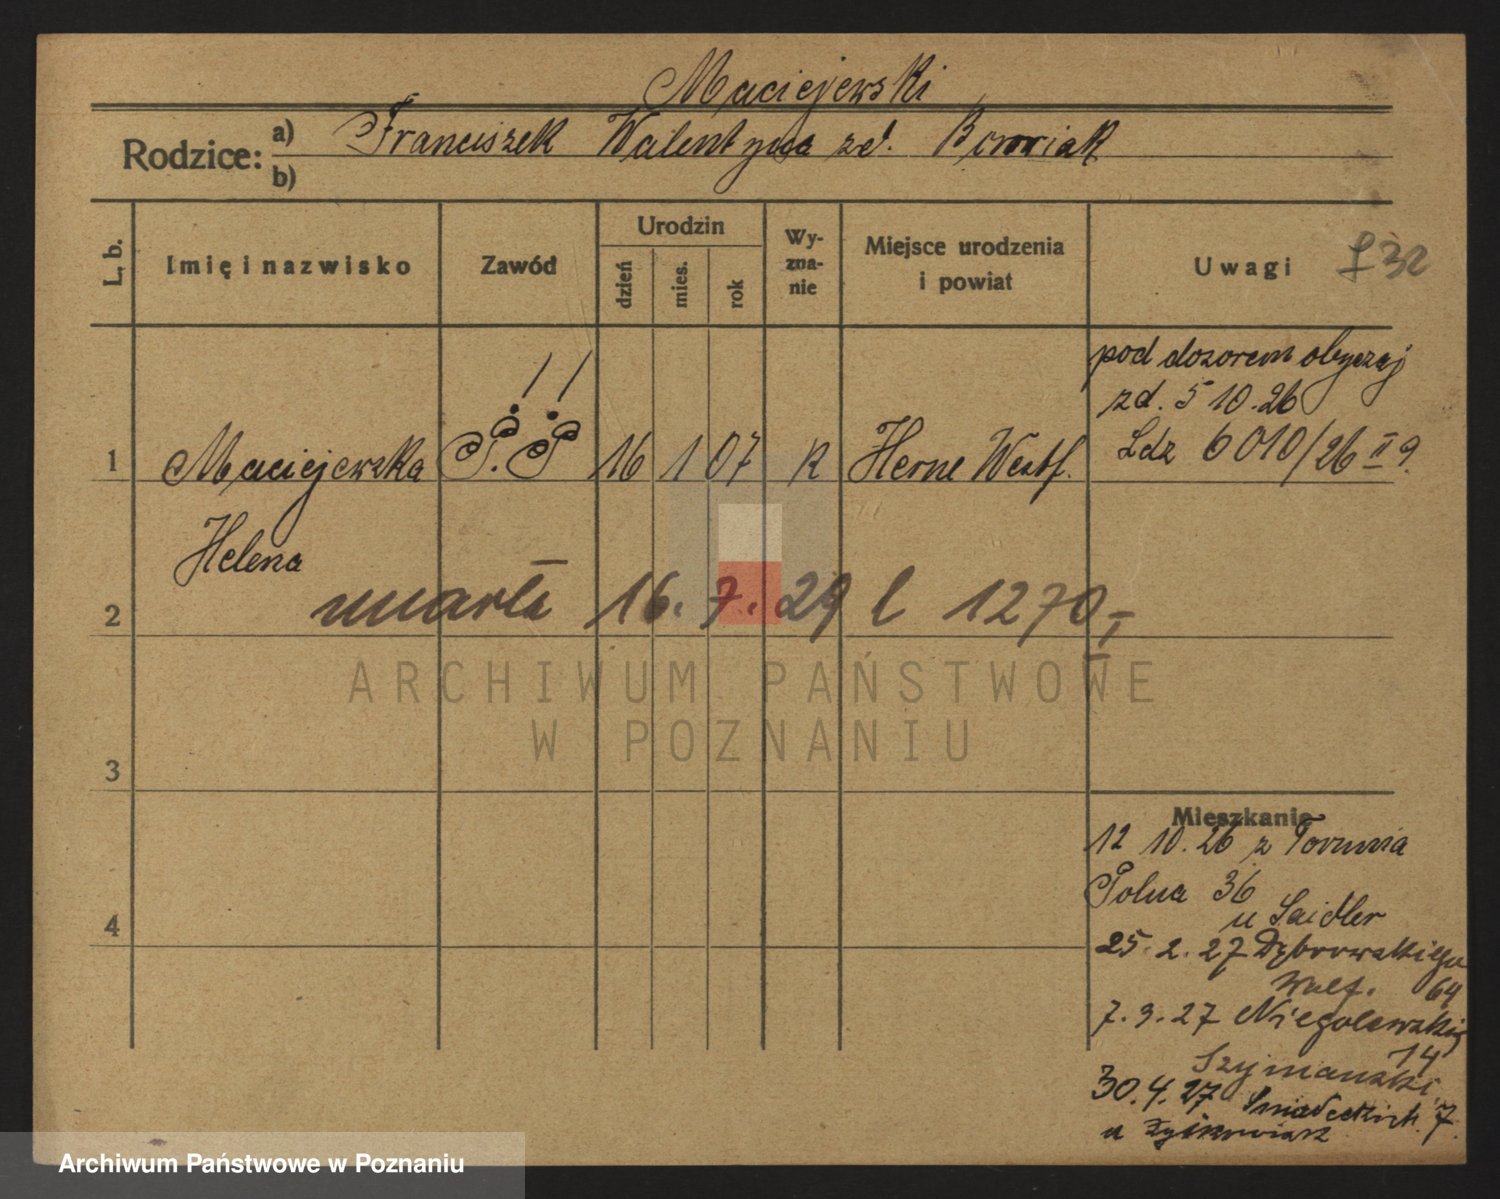 Maciejewski
Rodzice: a) Franciszek Walentyna zd.
b)
L. b. Imię i nazwisko Zawód Urodzin dzień mies. rok Wy-zna-nie Miejsce urodzenia i powiat Uwagi
pod dozorem obyczaj
zd. 5 10. 26
1 Maciejewska P. P. 16 1 07 R Herne Westf. Ldz 6010/26 II 9.
Helena
2 umarła 16. 7. 29 l 1270 I
ARCHIWUM PAŃSTWOWE
W POZNANIU
3
Mieszkanie
12 10. 26 z Torunia
Polna 36
u Saidler
4
25. 2. 27 Dąbrowskiego
64
7. 3. 27 Niegolewskich
14
Szymanski
30. 4. 27 Sniadeckich 7.
u
Archiwum Państwowe w Poznaniu